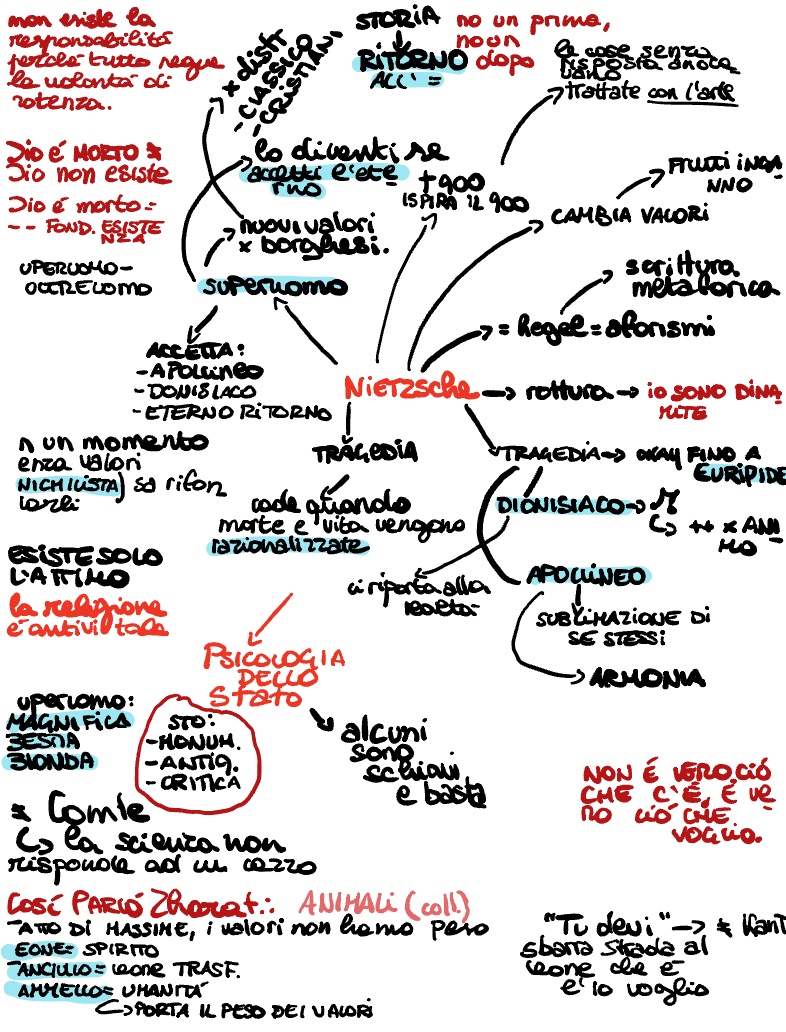 non esiste la
responsabilità
perché tutto segue
la volontà di
potenza.
STORIA
no un prima,
no un
dopo
RITORNO
ALL' =
x distr
- CLASSICO
- CRISTIANI
le cose senza
risposta
trattate con l'arte
DIO é MORTO ≠
Dio non esiste
Dio é morto =
-- FOND. ESISTE
NZA
UPERUOMO-
OLTREUOMO
lo diventi se
accetti l'ete
rno
+900
ISPIRA IL 900
FRUTTI INGA
NNO
CAMBIA VALORI
nuovi valori
x borghesi.
SUPERUOMO
scrittura
metaforica
= hegel = aforismi
ACCETTA:
- APOLLINEO
- DONISIACO
- ETERNO RITORNO
NIETZSCHE
rottura
iO SONO DINA
MITE
n un momento
enza valori
NICHILISTA) sa rifon
darli
TRAGEDIA
TRAGEDIA
OKAY FINO A
EURIPIDE
cade quando
morte e vita vengono
razionalizzate
DIONISIACO
++ x ANI
MO
ESISTE SOLO
L'ATTIMO
la religione
é antivitale
ci riporta alla
realtà
APOLLINEO
SUBLIMAZIONE DI
SE STESSI
ARMONIA
PSICOLOGIA
DELLO
STATO
uperuomo:
MAGNIFICA
BESTIA
BIONDA
STO:
- MONUM.
- ANTIQ.
- CRITICA
alcuni
sono
schiavi
e basta
NON É VERO CIÓ
CHE C'É, É VE
RO CIÓ CHE
VOGLIO.
≠ Comte
la scienza non
risponde ad un cazzo
COSÍ PARLÓ Zharat.: ANIMALI (coll.)
ATTO DI MASSIME, i valori non hanno peso
EONE = SPIRITO
ANCIULLO = leone TRASF.
AMMELLO = UMANITÁ
PORTA IL PESO DEI VALORI
"Tu devi" → ≠ KANT
sbarra strada al
leone che é
l'io voglio